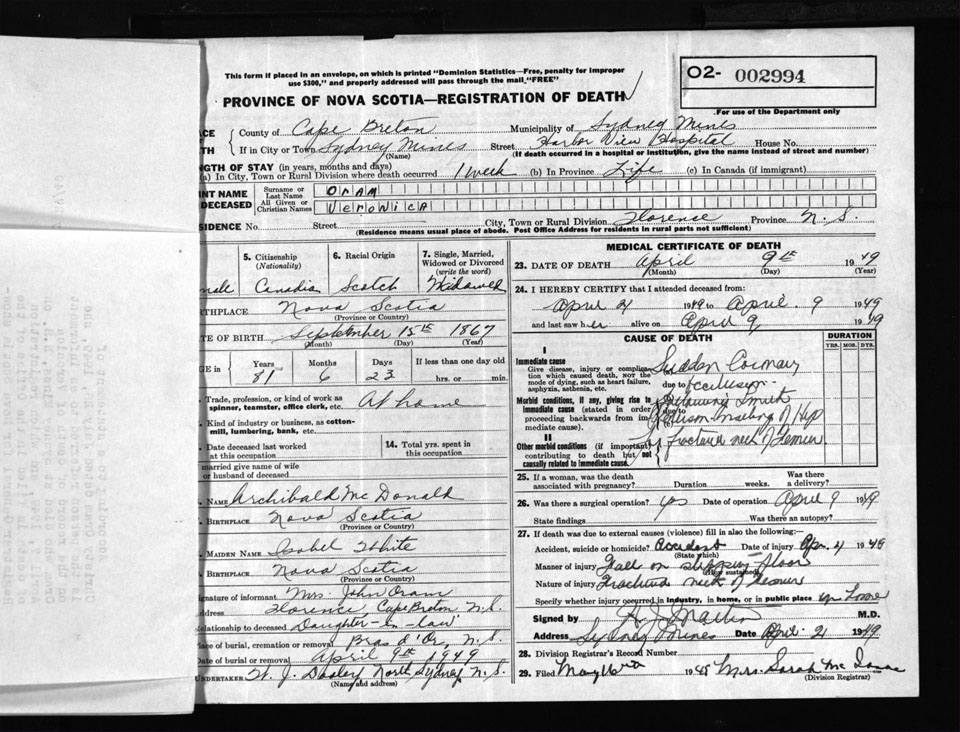 This form if placed in an envelope, on which is printed "Dominion Statistics—Free, penalty for improper
use $300," and properly addressed will pass through the mail "FREE"
O2- 002994
For use of the Department only
PROVINCE OF NOVA SCOTIA—REGISTRATION OF DEATH
County of Cape Breton Municipality of Sydney Mines
If in City or Town Sydney Mines (Name) Street Harbor View Hospital House No.
(If death occurred in a hospital or institution, give the name instead of street and number)
NGTH OF STAY (in years, months and days)
(a) In City, Town or Rural Division where death occurred 1 week (b) In Province Life (c) In Canada (if immigrant)
INT NAME DECEASED
Surname or Last Name Oram
All Given or Christian Names Veronica
SIDENCE No. Street City, Town or Rural Division Florence Province N. S.
(Residence means usual place of abode. Post Office Address for residents in rural parts not sufficient)
5. Citizenship (Nationality) Canadian
6. Racial Origin Scotch
7. Single, Married, Widowed or Divorced (write the word) Widowed
RTHPLACE Nova Scotia
(Province or Country)
TE OF BIRTH September 15th 1867
(Month) (Day) (Year)
GE in Years 81 Months 6 Days 23 If less than one day old hrs. or min.
Trade, profession, or kind of work as spinner, teamster, office clerk, etc. At home
Kind of industry or business, as cotton-mill, lumbering, bank, etc.
Date deceased last worked at this occupation
14. Total yrs. spent in this occupation
married give name of wife or husband of deceased
NAME Archibald McDonald
BIRTHPLACE Nova Scotia
(Province or Country)
MAIDEN NAME Isabel White
BIRTHPLACE Nova Scotia
(Province or Country)
Signature of informant Mrs. John Oram
address Florence, Cape Breton N. S.
Relationship to deceased Daughter-in-law
Place of burial, cremation or removal Bras d'Or, N. S.
Date of burial or removal April 9th 1949
UNDERTAKER W. J. Dooley North Sydney N. S.
(Name and address)
MEDICAL CERTIFICATE OF DEATH
23. DATE OF DEATH April 9th 1949
(Month) (Day) (Year)
24. I HEREBY CERTIFY that I attended deceased from:
April 4 1949 to April 9 1949
and last saw her alive on April 9, 1949
CAUSE OF DEATH
DURATION
YRS. MOS. DYS.
I
Immediate cause
Give disease, injury or complication which caused death, not the mode of dying, such as heart failure, asphyxia, asthenia, etc.
Sudden Coronary
due to occlusion
Morbid conditions, if any, giving rise to immediate cause (stated in order proceeding backwards from immediate cause).
following Smith
due to
Peterson nailing of Hip
II
Other morbid conditions (if important) contributing to death but not causally related to immediate cause.
for fractured neck of Femur
25. If a woman, was the death associated with pregnancy? Duration weeks. Was there a delivery?
26. Was there a surgical operation? yes Date of operation April 9 1949
State findings Was there an autopsy?
27. If death was due to external causes (violence) fill in also the following:
Accident, suicide or homicide? Accident Date of injury Apr. 4 1949
(State which)
Manner of injury Fall on slippery floor
(How sustained)
Nature of injury Fractured neck of femur
Specify whether injury occurred in industry, in home, or in public place in home
Signed by M.D.
Address Sydney Mines Date April 21 1949
28. Division Registrar's Record Number
29. Filed 19 Mrs. Sarah
(Division Registrar)